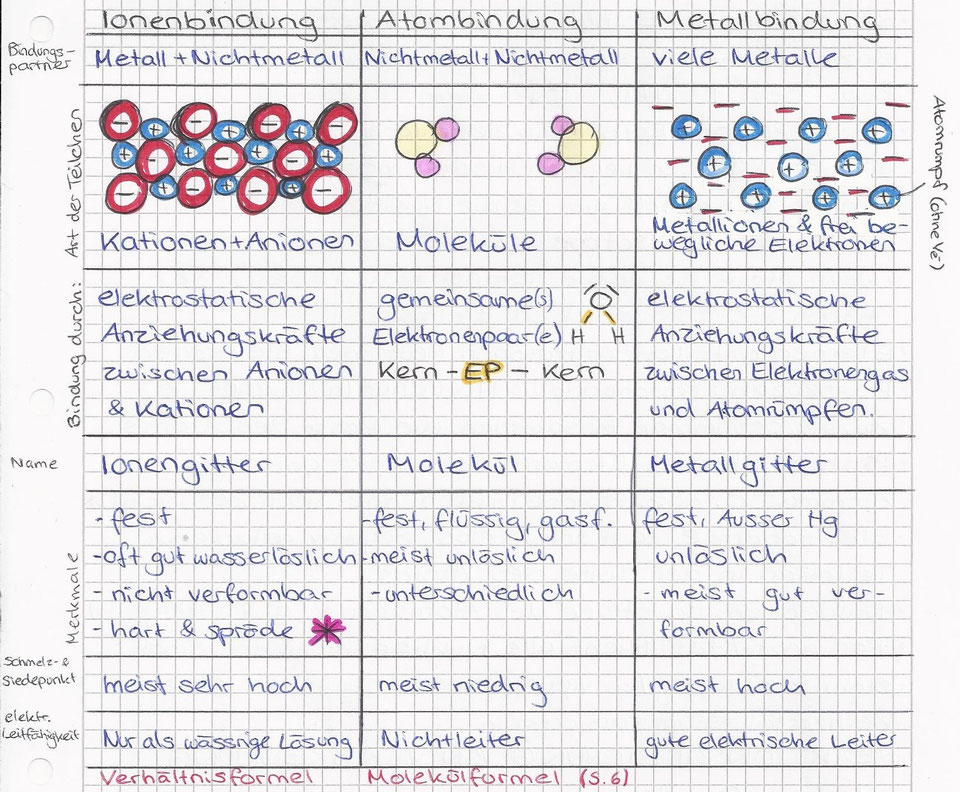 Ionenbindung Atombindung Metallbindung
Bindungs-
partner
Metall + Nichtmetall Nichtmetall + Nichtmetall viele Metalle
Art der Teilchen
Kationen + Anionen
Moleküle
Metallionen & frei be-
wegliche Elektronen
Atomrumpf (ohne Ve-)
Bindung durch:
elektrostatische
Anziehungskräfte
zwischen Anionen
& Kationen
gemeinsame(s)
Elektronenpaar(e)
O
H H
Kern - EP - Kern
elektrostatische
Anziehungskräfte
zwischen Elektronengas
und Atomrümpfen.
Name
Ionengitter Molekül Metallgitter
Merkmale
- fest
- oft gut wasserlöslich
- nicht verformbar
- hart & spröde
- fest, flüssig, gasf.
- meist unlöslich
- unterschiedlich
fest, Ausser Hg
unlöslich
- meist gut ver-
formbar
Schmelz- &
Siedepunkt
meist sehr hoch meist niedrig meist hoch
elektr.
Leitfähigkeit
Nur als wässrige Lösung Nichtleiter gute elektrische Leiter
Verhältnisformel Molekülformel (S.6)